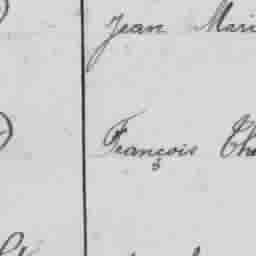 Jean Mari
François Th